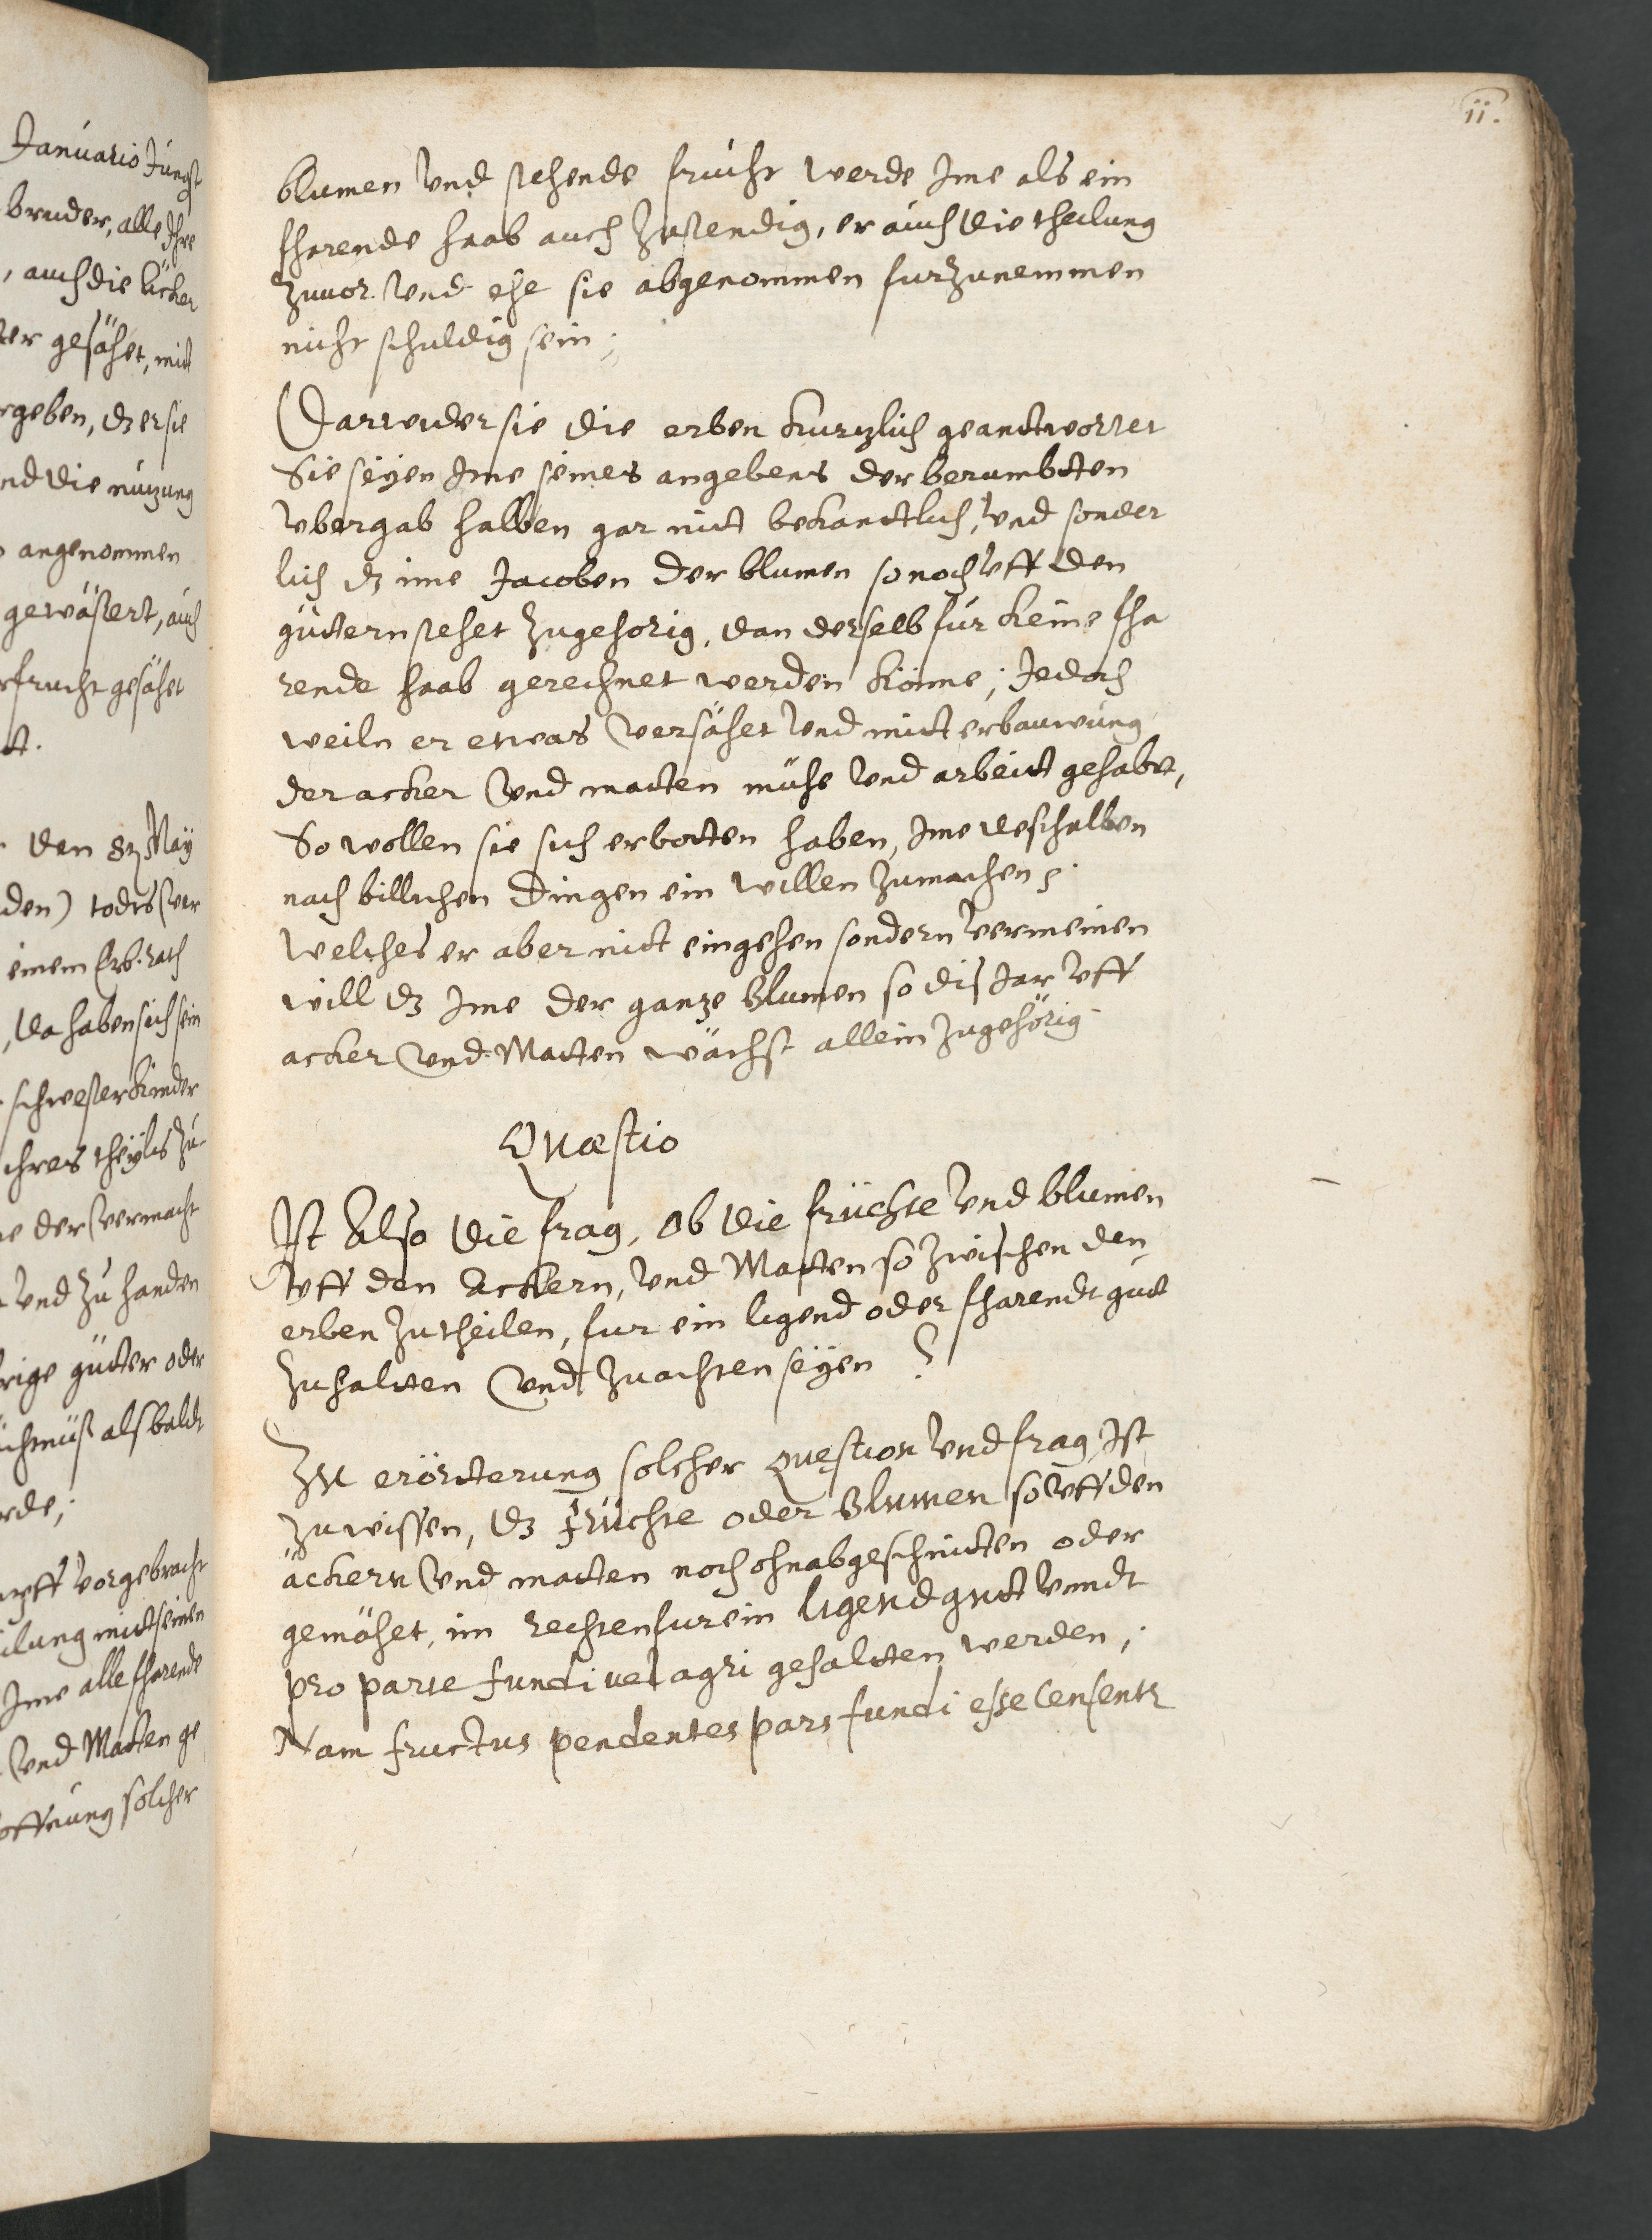 Januario Jüngst
bruder, alle Ihre
, auch die äcker
ter gesähet, mit
rgeben, dz er sie
nd die nutzung
angenommen
gewässert, auch
frucht gesähet
tt.
den 8 Maÿ
den) todts ver
einem Ers. rath
, da haben sich sein
schwester Kinder
ihres theÿls zu
der vermacht
und zu handen
rige gütter oder
alsbaldt
rde;
uff vorgebracht
ilung mitt seinen
Ime alle fharende
und Matten ge
offnung solcher
11.
blumen und stehende frücht werde Ime als ein
fharende haab auch zustendig, er auch die theilung
zuvor und ehe sie abgenommen furzunemmen
nicht schuldig sein;
Darwider sie die erben kurtzlich geantwortet
Sie seÿen Ime seines angebens der berumbtten
ubergab halben gar nitt bekandtlich, und sonder
lich dz ime Jacoben der blumen so noch uff den
güttern stehet zugehörig, dan derselb für keine fha
rende haab gerechnet werden könne; Jedoch
weiln er etwas versähet und mitt erbauwung
der acker und matten mühe und arbeitt gehabt,
So wollen sie sich erbotten haben, Ime deshalben
nach billichen dingen ein willen zumachen;
welches er aber nitt eingehen sondern vermeinen
will dz Ime der gantze Blumen so dis Jar uff
acker und Matten wächst allein zugehörig
Quæstio
Ist Also die frag, Ob die früchte und blumen
uff den Ackern, und Matten so zwischen den
erben zutheilen, fur ein ligend oder fharendt gutt
zuhaltten und zuachten seÿen?
Zu erörtterung solcher Quęstion und frag Ist
zuwissen, dz früchte oder Blumen so uff den
äckern und matten noch ohnabgeschnitten oder
gemähet, im rechten fur ein ligend gutt unndt
pro parte fundi vel agri gehaltten werden;
Nam fructus pendentes pars fundi esse censentr